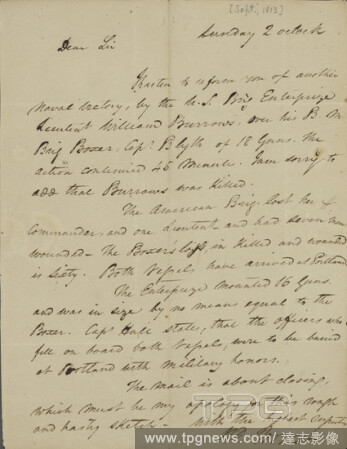 [Sept. 1813]
Sunday 2 oclock
Dear Sir
I hasten to inform you of another
Naval victory, by the U.S. Brig Enterprize
Lieutent William Burrows. over his B M
Brig Boxer. Capt Blyth of 18 Guns. The
action continued 45 Minutes. I am sorry to
add that Burrows was killed.
The American Brig. lost her
Commander, and one Lieutent and had seven men
wounded — The Boxer's loss, in killed and wounded
is Sixty. Both Vessels have arrived at Portland
The Enterprize mounted 16 Guns.
and was in size by no means equal to the
Boxer. Capt Hull states, that the officers who
fell on board both Vessels, were to be buried
at Portland with military honors.
The mail is about closing,
which must be my apology for this rough
and hasty sketch — with the highest respect
TPG
www.tpgnews.com / 達志影像